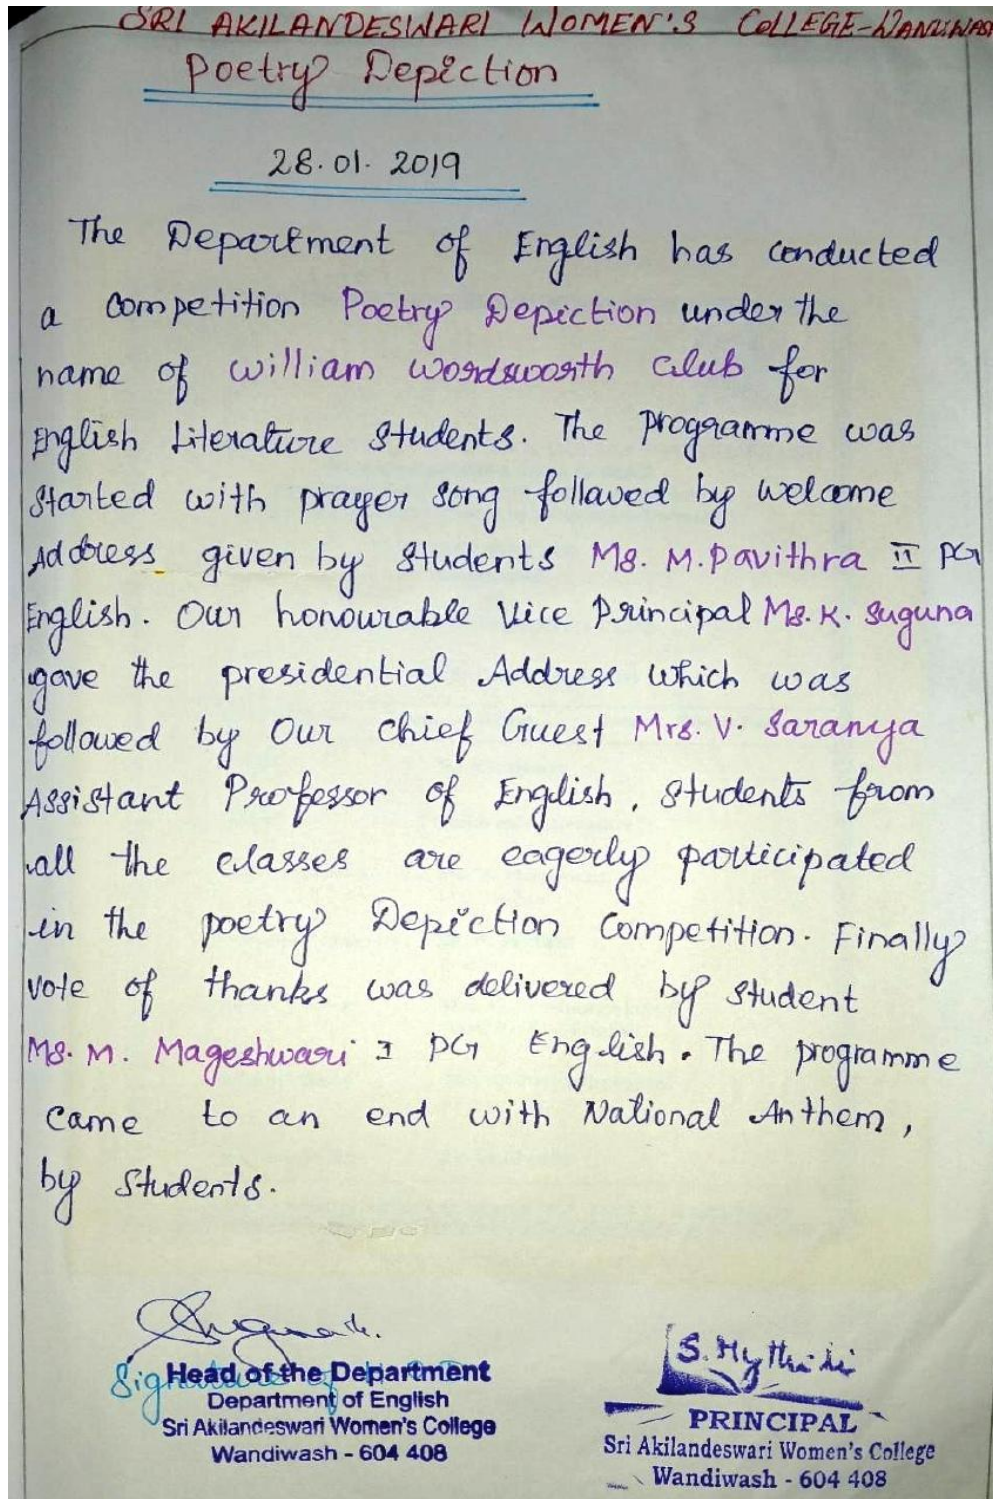 SRI AKILANDESWARI WOMEN'S COLLEGE-WANDIWASH
Poetry Depiction
28.01.2019
The Department of English has conducted
a competition Poetry Depiction under the
name of William Wordsworth Club for
English Literature Students. The programme was
Started with prayer song followed by Welcome
Address given by students Ms. M. Pavithra II PG
English. Our honourable Vice Principal Ms. K. Suguna
gave the presidential Address which was
followed by Our Chief Guest Mrs. V. Saranya
Assistant Professor of English, Students from
all the classes are eagerly participated
in the poetry Depiction Competition. Finally
vote of thanks was delivered by student
Ms. M. Mageshwari I PG English. The programme
Came to an end with National Anthem,
by Students.
Head of the Department
Department of English
Sri Akilandeswari Women's College
Wandiwash - 604 408
S. Hythili
PRINCIPAL
Sri Akilandeswari Women's College
Wandiwash - 604 408